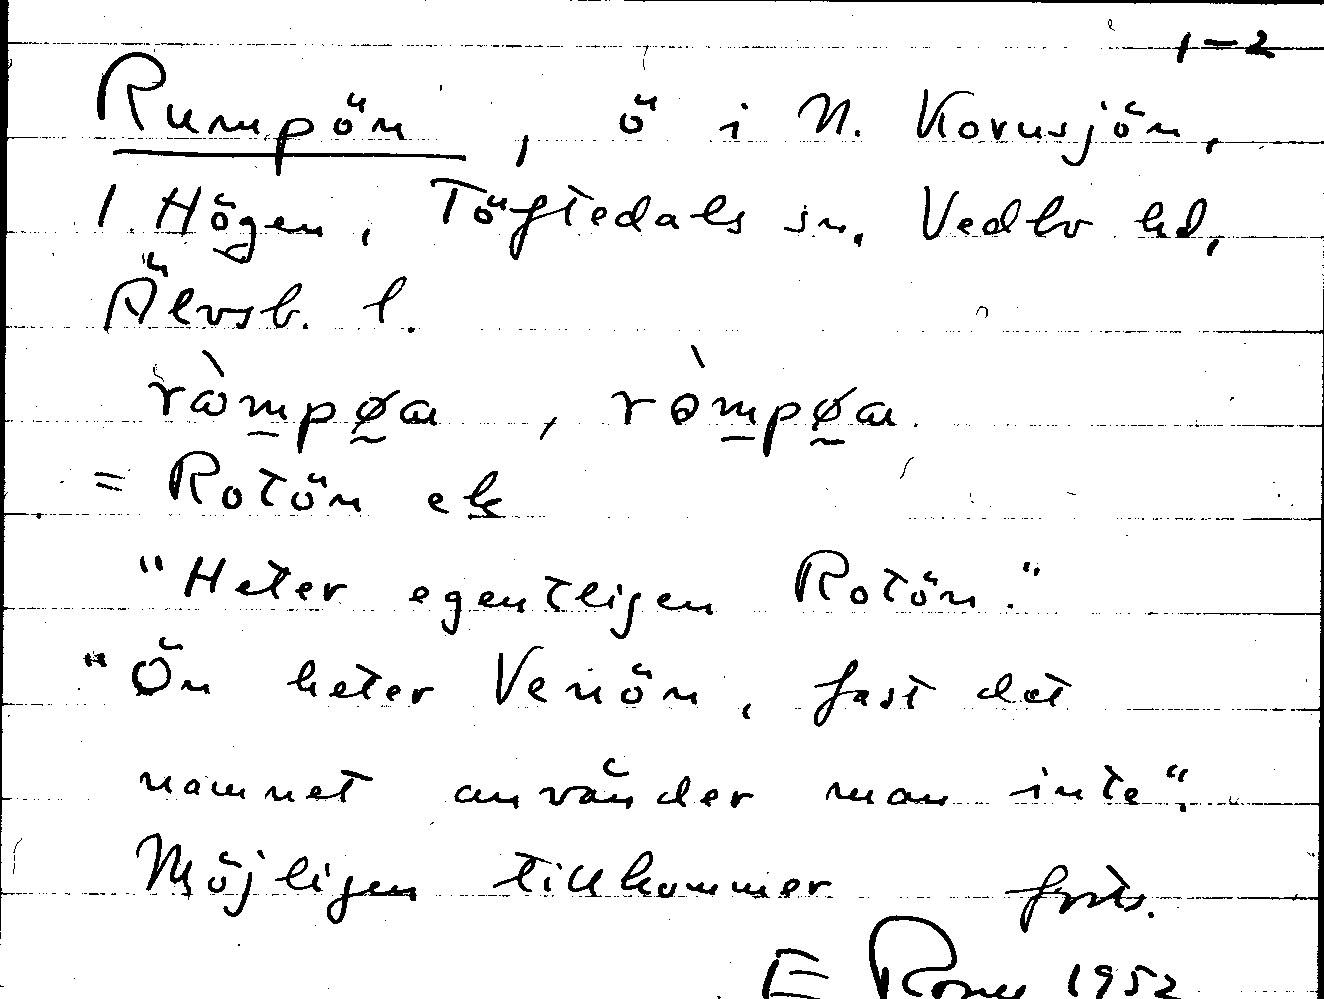 1-2
Rumpön, ö i N. Kornsjön,
1. Högen, Töftedals sn, Vedbo hd,
Älvsb. l.
= Rotön ek
"Heter egentligen Rotön."
"Ön heter Venön, fast det
namnet använder man inte".
Möjligen tillkommer forts.
E Rony 1952